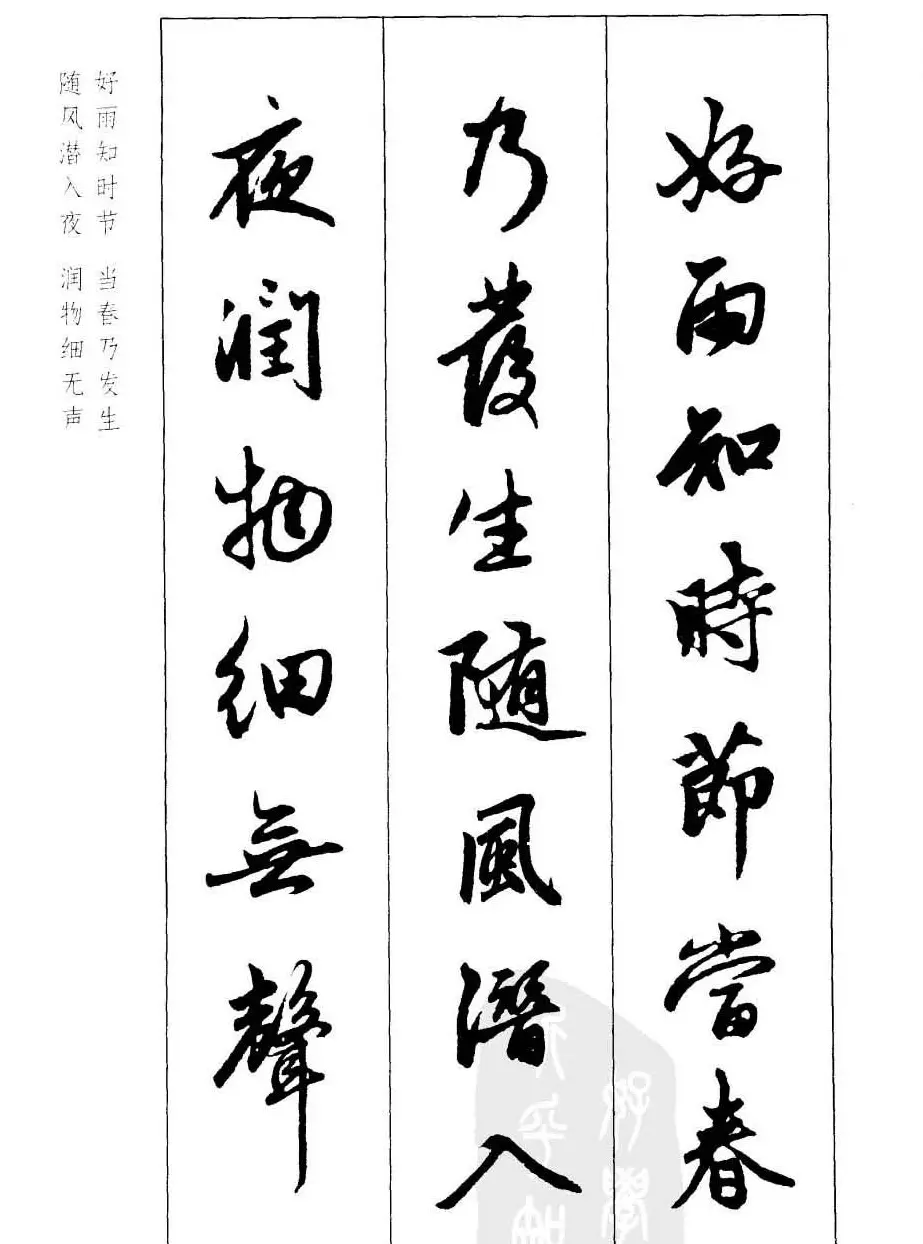 好雨知時節當春
乃發生随風潛入
夜潤物細無聲
好雨知时节 当春乃发生
随风潜入夜 润物细无声